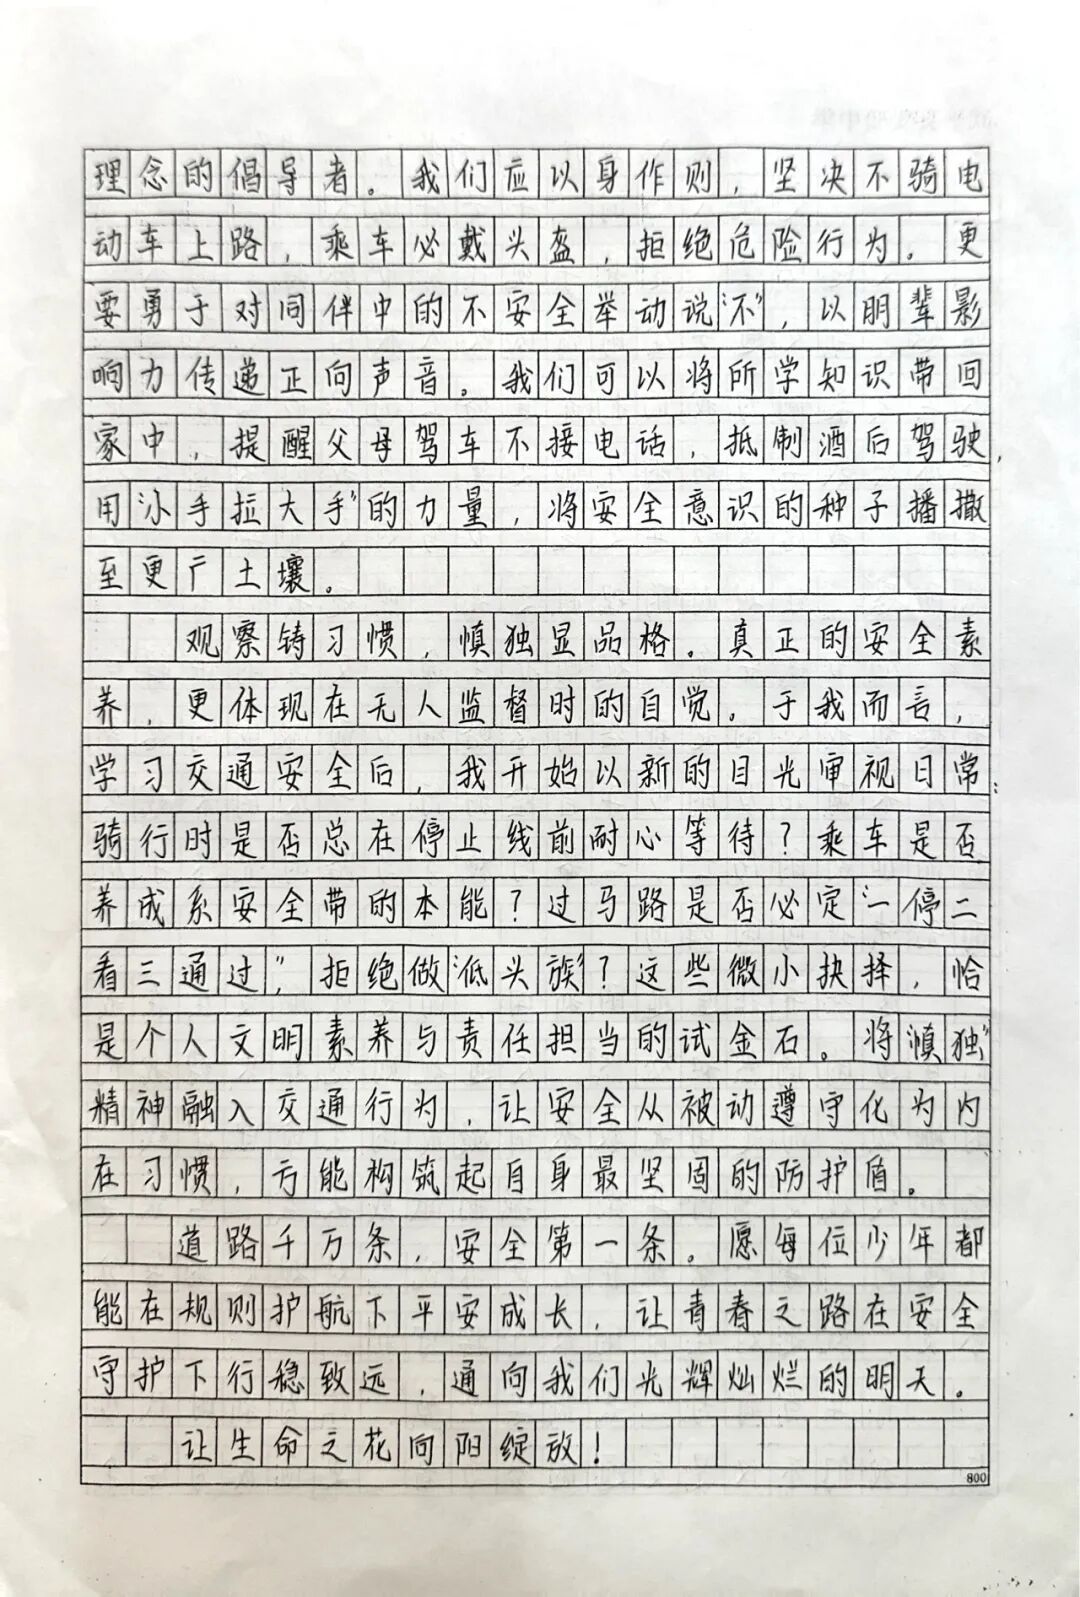 理念的倡导者。我们应以身作则，坚决不骑电
动车上路，乘车必戴头盔，拒绝危险行为。更
要勇于对同伴中的不安全举动说“不”，以朋辈影
响力传递正向声音。我们可以将所学知识带回
家中，提醒父母驾车不接电话，抵制酒后驾驶，
用“小手拉大手”的力量，将安全意识的种子播撒
至更广土壤。
观察铸习惯，慎独显品格。真正的安全素
养，更体现在无人监督时的自觉。于我而言，
学习交通安全后，我开始以新的目光审视日常：
骑行时是否总在停止线前耐心等待？乘车是否
养成系安全带的本能？过马路是否必定“一停二
看三通过”，拒绝做“低头族”？这些微小抉择，恰
是个人文明素养与责任担当的试金石。将“慎独”
精神融入交通行为，让安全从被动遵守化为内
在习惯，方能构筑起自身最坚固的防护盾。
道路千万条，安全第一条。愿每位少年都
能在规则护航下平安成长，让青春之路在安全
守护下行稳致远，通向我们光辉灿烂的明天。
让生命之花向阳绽放！
800